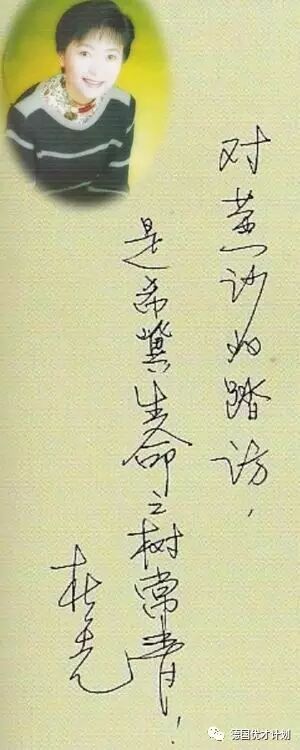 对黄沙的踏访，
是希冀生命之树常青！
杜
德国优才计划